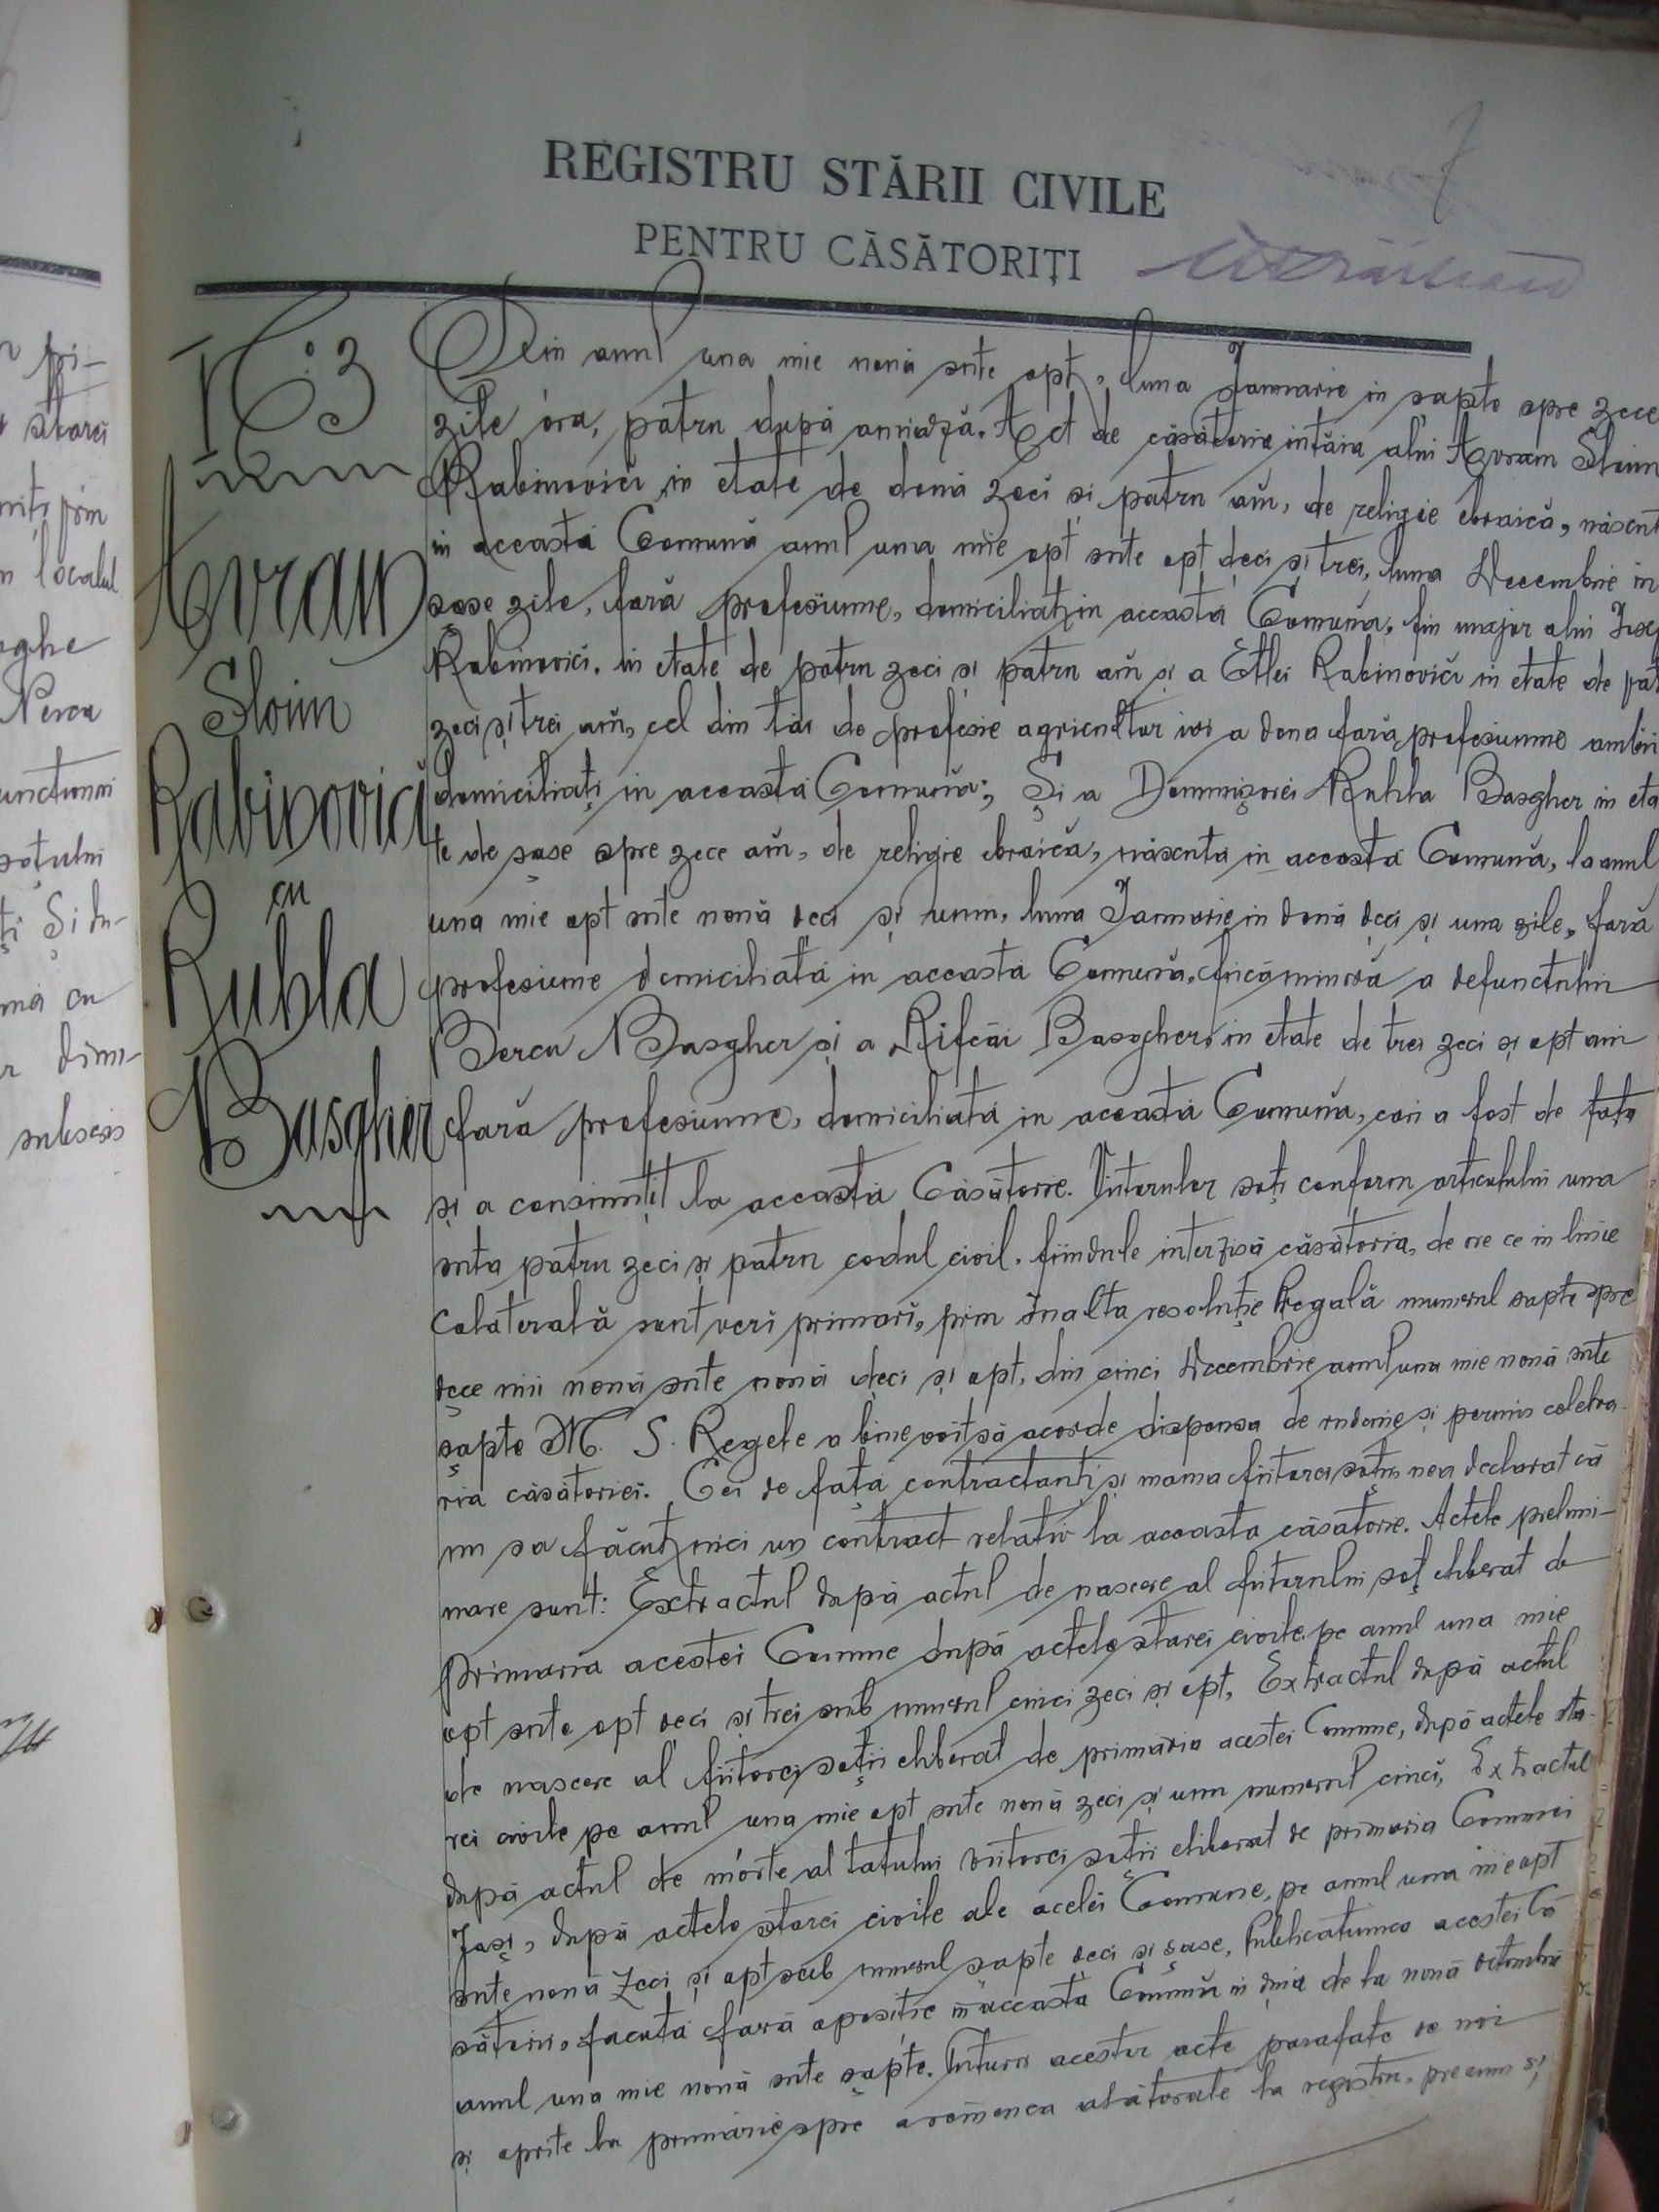 REGISTRU STĂRII CIVILE
PENTRU CĂSĂTORIȚI
No 3
Avram
Sloim
Rabinovici
cu
Ruhla
Basgher
Din anul una mie nouă sute opt, luna Ianuarie in șapte spre zece
zile óra, patru după amiază. Act de căsătorie intăia alui Avram Sloim
Rabinovici, in etate de două zeci și patru ani, de religie ebraică, născut
in această Comună anul una mie opt sute opt deci și trei, luna Decembrie in
șase zile, fară profesiune, domiciliat in această Comună, fiu major alui
Rabinovici, in etate de patru zeci și patru ani și a Etlei Rabinovici in etate de
zeci și trei ani, cel din tăi de profesie agricultor iar a doua fară profesiunne ambii
domiciliați in această Comună; Și a Domnișorei Ruhla Basgher in eta
te de șase spre zece ani, de religie ebraică, născută in această Comună, la anul
una mie opt sute nouă deci și unu, luna Ianuarie in două deci și una zile, fară
profesiune domiciliată in această Comună, fiică minoră a defunctului
Bercu Basgher și a Rifcăi Basgher, in etate de trei zeci și opt ani
fară profesiunne, domiciliată in această Comună, cari a fost de fata
și a consimțit la această Căsătorie. Viitorulor soți conform articolului una
suta patru zeci și patru codul civil, fiindule interzisă căsătoria, de ore ce in linie
Colaterală sunt veri primari, prin Inalta resoluție Regală numerul șapte spre
dece mii nouă sute nouă deci și opt, din cinci Decembrie anul una mie nouă sute
șapte M. S. Regele a bine voit să acorde dispensa de rudenie și permis celebra
rea căsătoriei. Cei de față contractanți și mama fiitorei soții, nea declarat că
nu sa făcut nici un contract relativ la aceasta căsătorie. Actele prelimi-
nare sunt: Extractul după actul de nascere al fiitorului soț eliberat de
primaria acestei Comune după actele starei civile pe anul una mie
opt sute opt deci și trei sub numerul cinci zeci și opt, Extractul după actul
de nascere al fiitorei soții eliberat de primăria acestei Comune, după actele sta-
rei civile pe anul una mie opt sute nouă zeci și unu numerul cinci, Extractul
după actul de mórte al tatului viitorei soții eliberat de primaria Comunei
Iași, după actele starei civile ale acelei Comune, pe anul una mie opt
sute nouă zeci și opt sub numerul șapte deci și șase, Publicațiunea acestei Că
sătorii, facută fară oposiție in această Comună in dina de la nouă Octombrie
anul una mie nouă sute șapte. Tuturor acestor acte parafate de noi
și oprite la primărie spre a remănea alăturate la registru, precum și